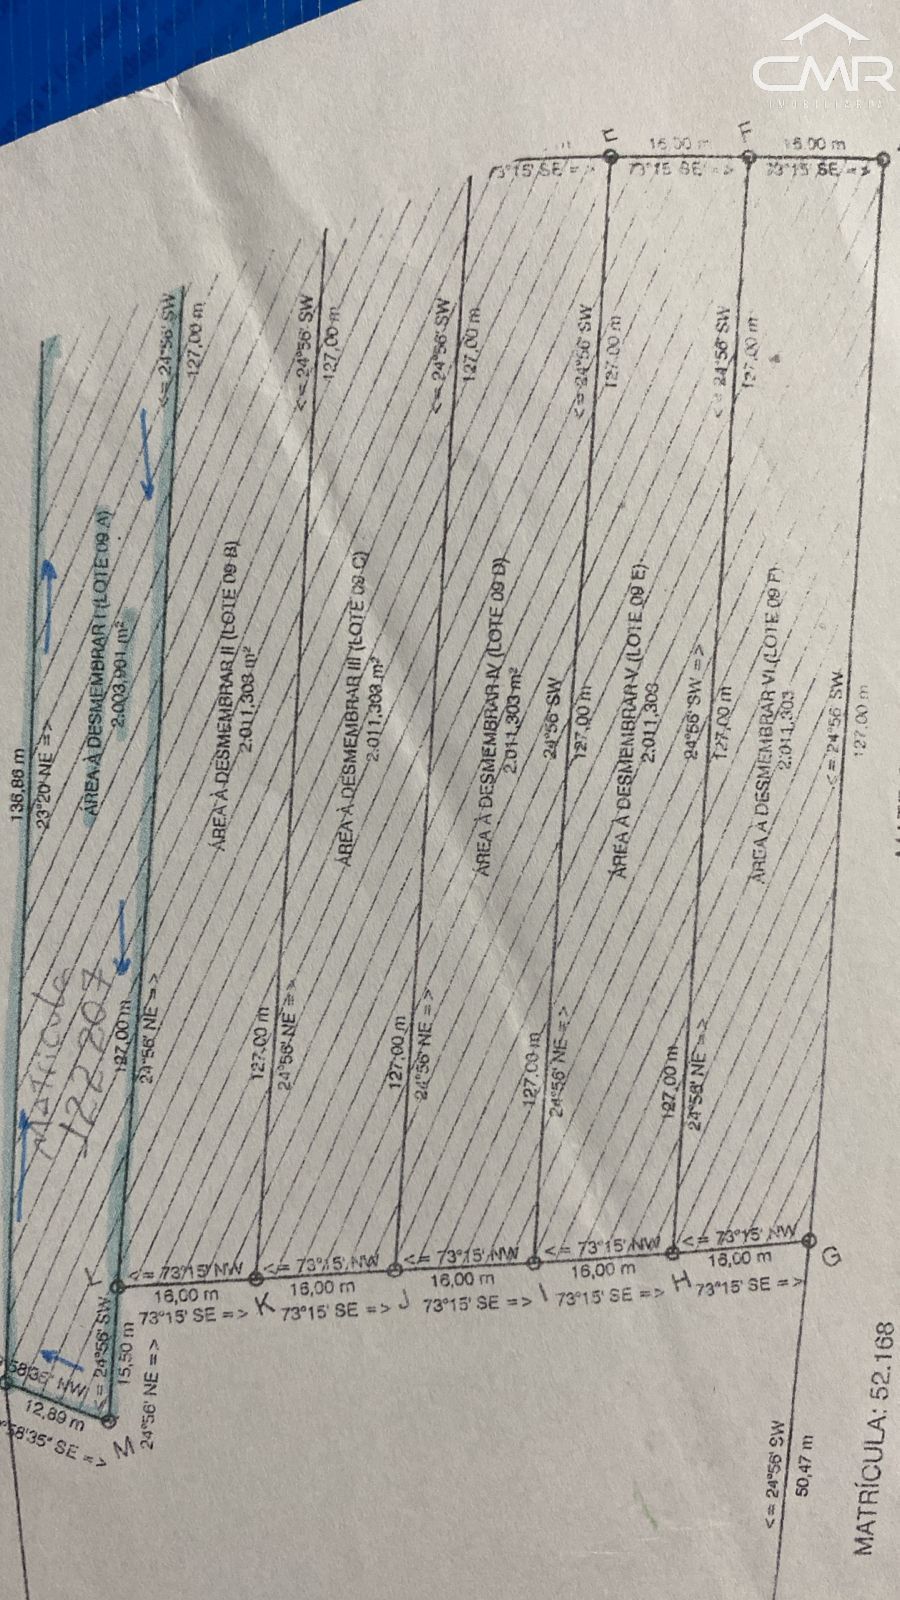 CMR
IMOBILIÁRIA
E
16,00 m
F
16.00 m
73°15' SE =>
73°15' SE =>
73°15' SE =>
<= 24°56' SW
127,00 m
<= 24°56' SW
127,00 m
<= 24°56' SW
127,00 m
<= 24°56' SW
127,00 m
<= 24°56' SW
127,00 m
136,86 m
23°20' NE =>
ÁREA À DESMEMBRAR I (LOTE 09 A)
2.003,901 m²
ÁREA À DESMEMBRAR II (LOTE 09 B)
2.011,303 m²
ÁREA À DESMEMBRAR III (LOTE 09 C)
2.011,303 m²
ÁREA À DESMEMBRAR IV (LOTE 09 D)
2.011,303 m²
24°56' SW
127,00 m
ÁREA À DESMEMBRAR V (LOTE 09 E)
2.011,303
24°56' SW =>
127,00 m
ÁREA A DESMEMBRAR VI (LOTE 09 F)
2.011,303
<= 24°56' SW
127,00 m
Matricula
122207
127,00 m
24°56' NE =>
127,00 m
24°56' NE =>
127,00 m
24°56' NE =>
127,00 m
24°56' NE =>
127,00 m
24°56' NE =>
<= 73°15' NW
16,00 m
73°15' SE =>
K
<= 73°15' NW
16,00 m
73°15' SE =>
J
<= 73°15' NW
16,00 m
73°15' SE =>
I
<= 73°15' NW
16,00 m
73°15' SE =>
H
<= 73°15' NW
16,00 m
73°15' SE =>
G
<= 24°56' SW
15,50 m
24°56' NE =>
58'35" NW
12,89 m
°58'35" SE =>
M
<= 24°56' SW
50,47 m
MATRÍCULA: 52.168